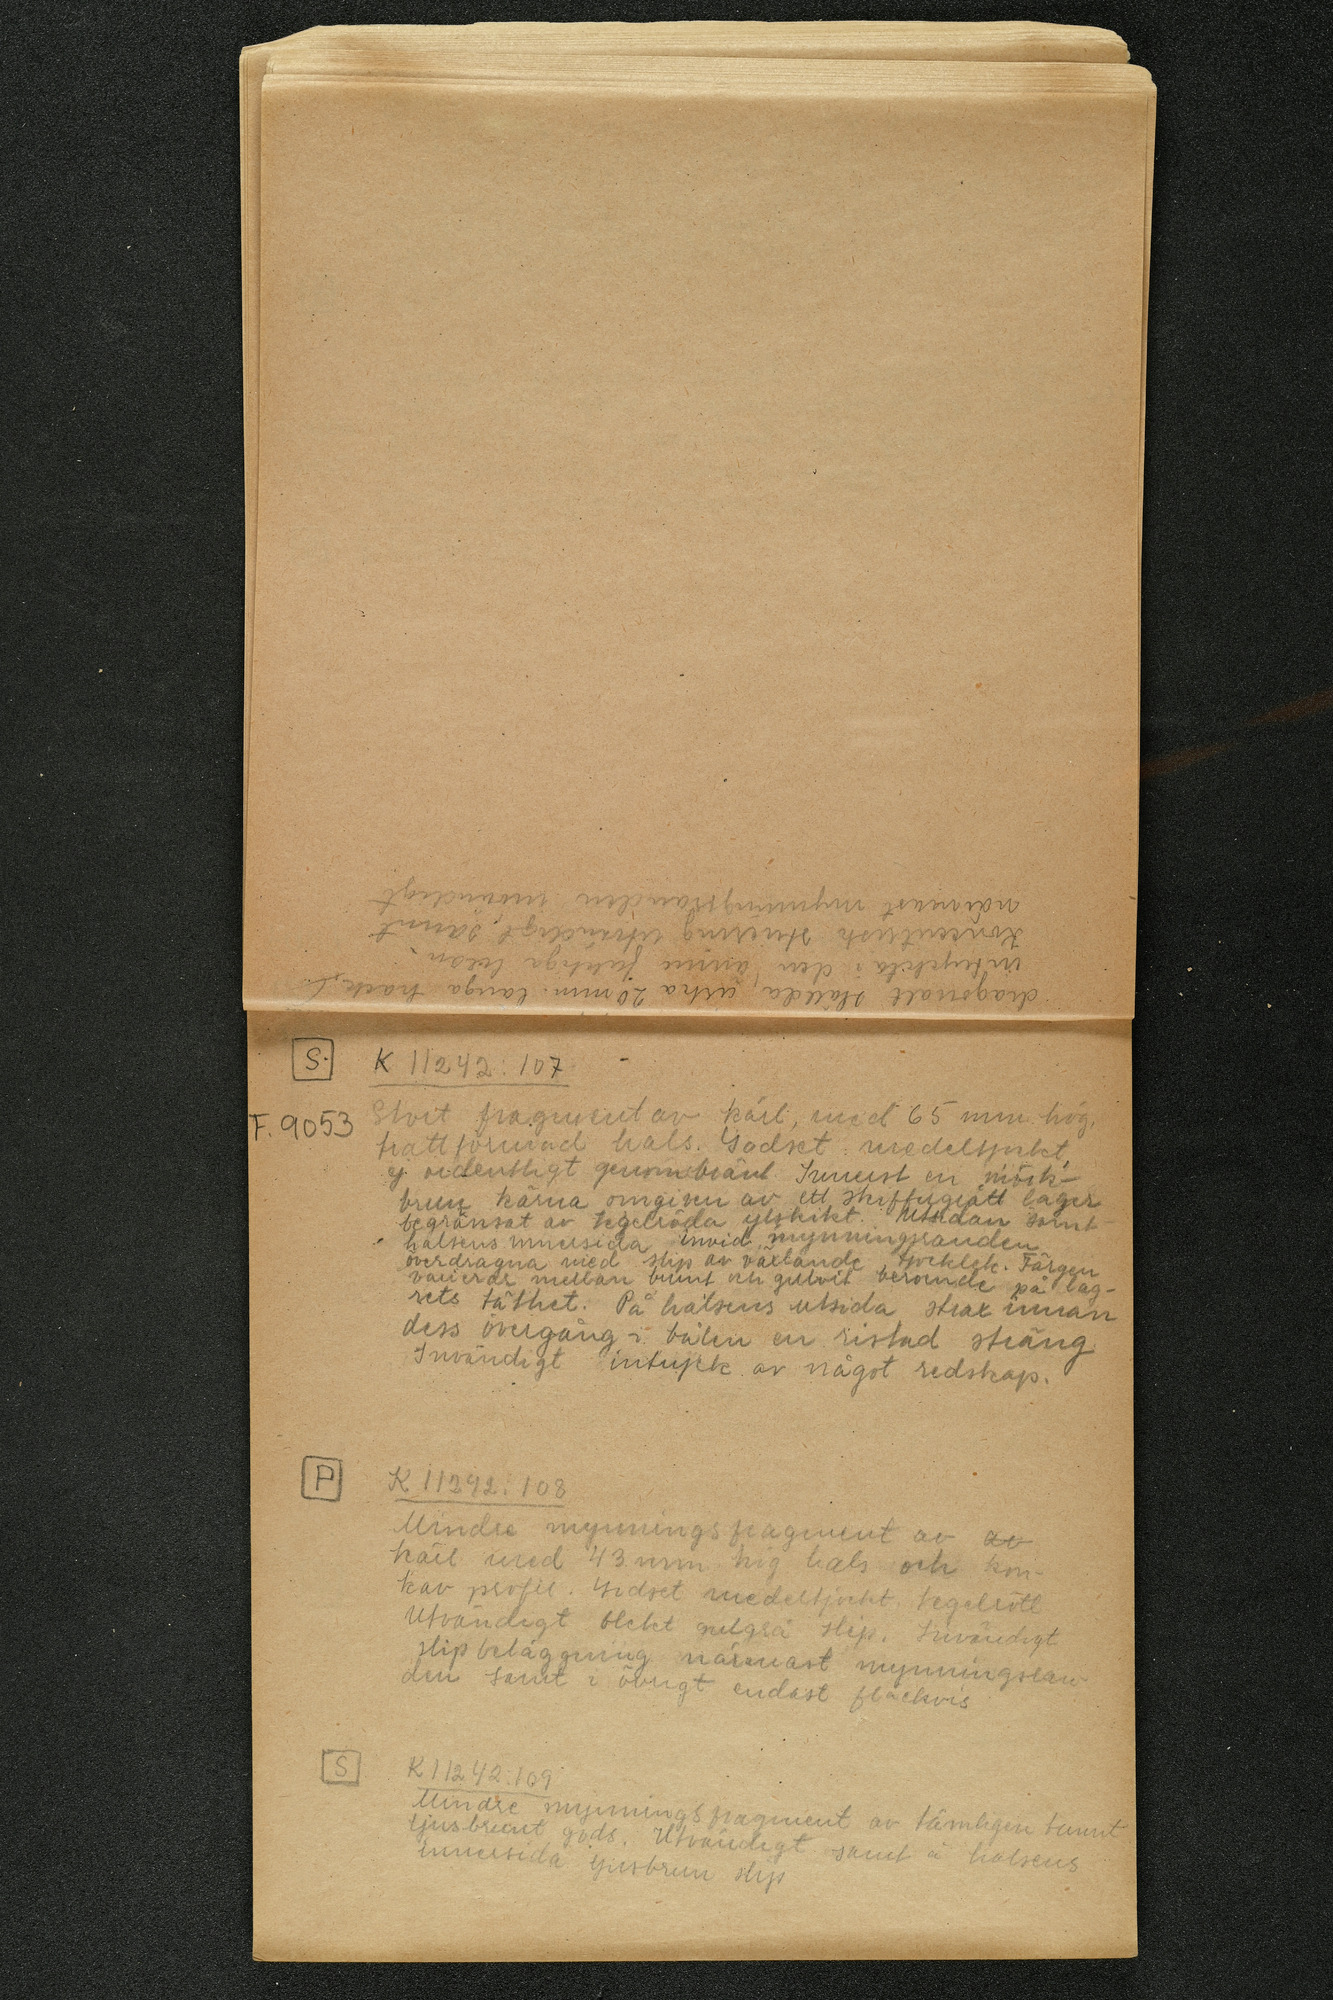 diagonalt ställda, cirka 20 mm. långa hack,
intryckta i den ännu fuktiga leran.
Koncentrisk striering utvändigt, samt
närmast mynningsranden invändigt
S. K 11242:107
F. 9053 Stort fragment av kärl, med 65 mm hög,
trattformad hals. Godset medeltjockt,
ej ordentligt genombränt. Innerst en mörk-
brun kärna omgiven av ett skiffergrått lager
begränsat av tegelröda ytskikt. Utsidan samt
halsens innersida invid mynningsranden
överdragna med slip av växlande tjocklek. Färgen
varierar mellan brunt och gulvit beroende på lag-
rets täthet. På halsens utsida strax innan
dess övergång i bålen en ristad sträng
Invändigt intryck av något redskap.
P K 11242:108
Mindre mynningsfragment av av
kärl med 43 mm hög hals och kon-
kav profil. Godset medeltjockt tegelrött
Utvändigt blekt gulgrå slip. Invändigt
slipbeläggning närmast mynningsran-
den samt i övrigt endast fläckvis
S K 11242:109
Mindre mynningsfragment av tämligen tunnt
ljusbrunt gods. Utvändigt samt å halsens
innersida ljusbrun slip